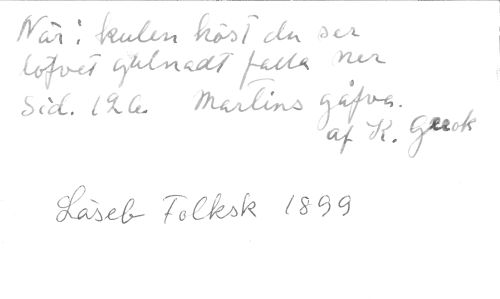 När i kulen höst du ser
löfvet gulnadt falla ner
Sid. 126. Martins gåfva.
af K. Geok
Läseb Folksk 1899